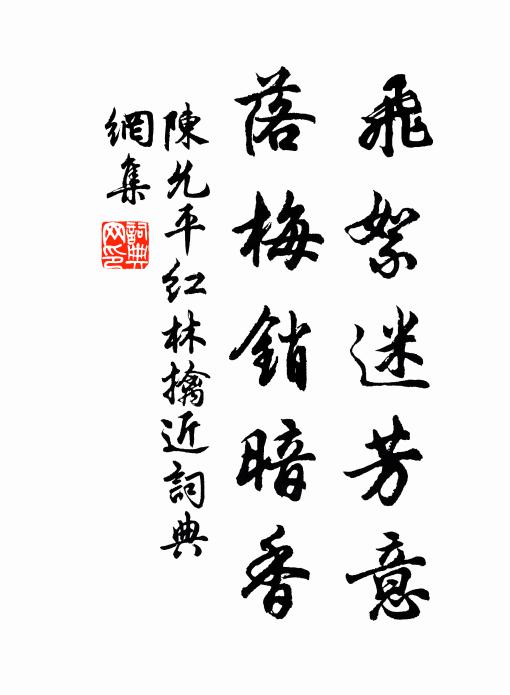 飛絮迷芳意
落梅銷暗香
陳允平紅林擒近詞典
網集
詞典
网印